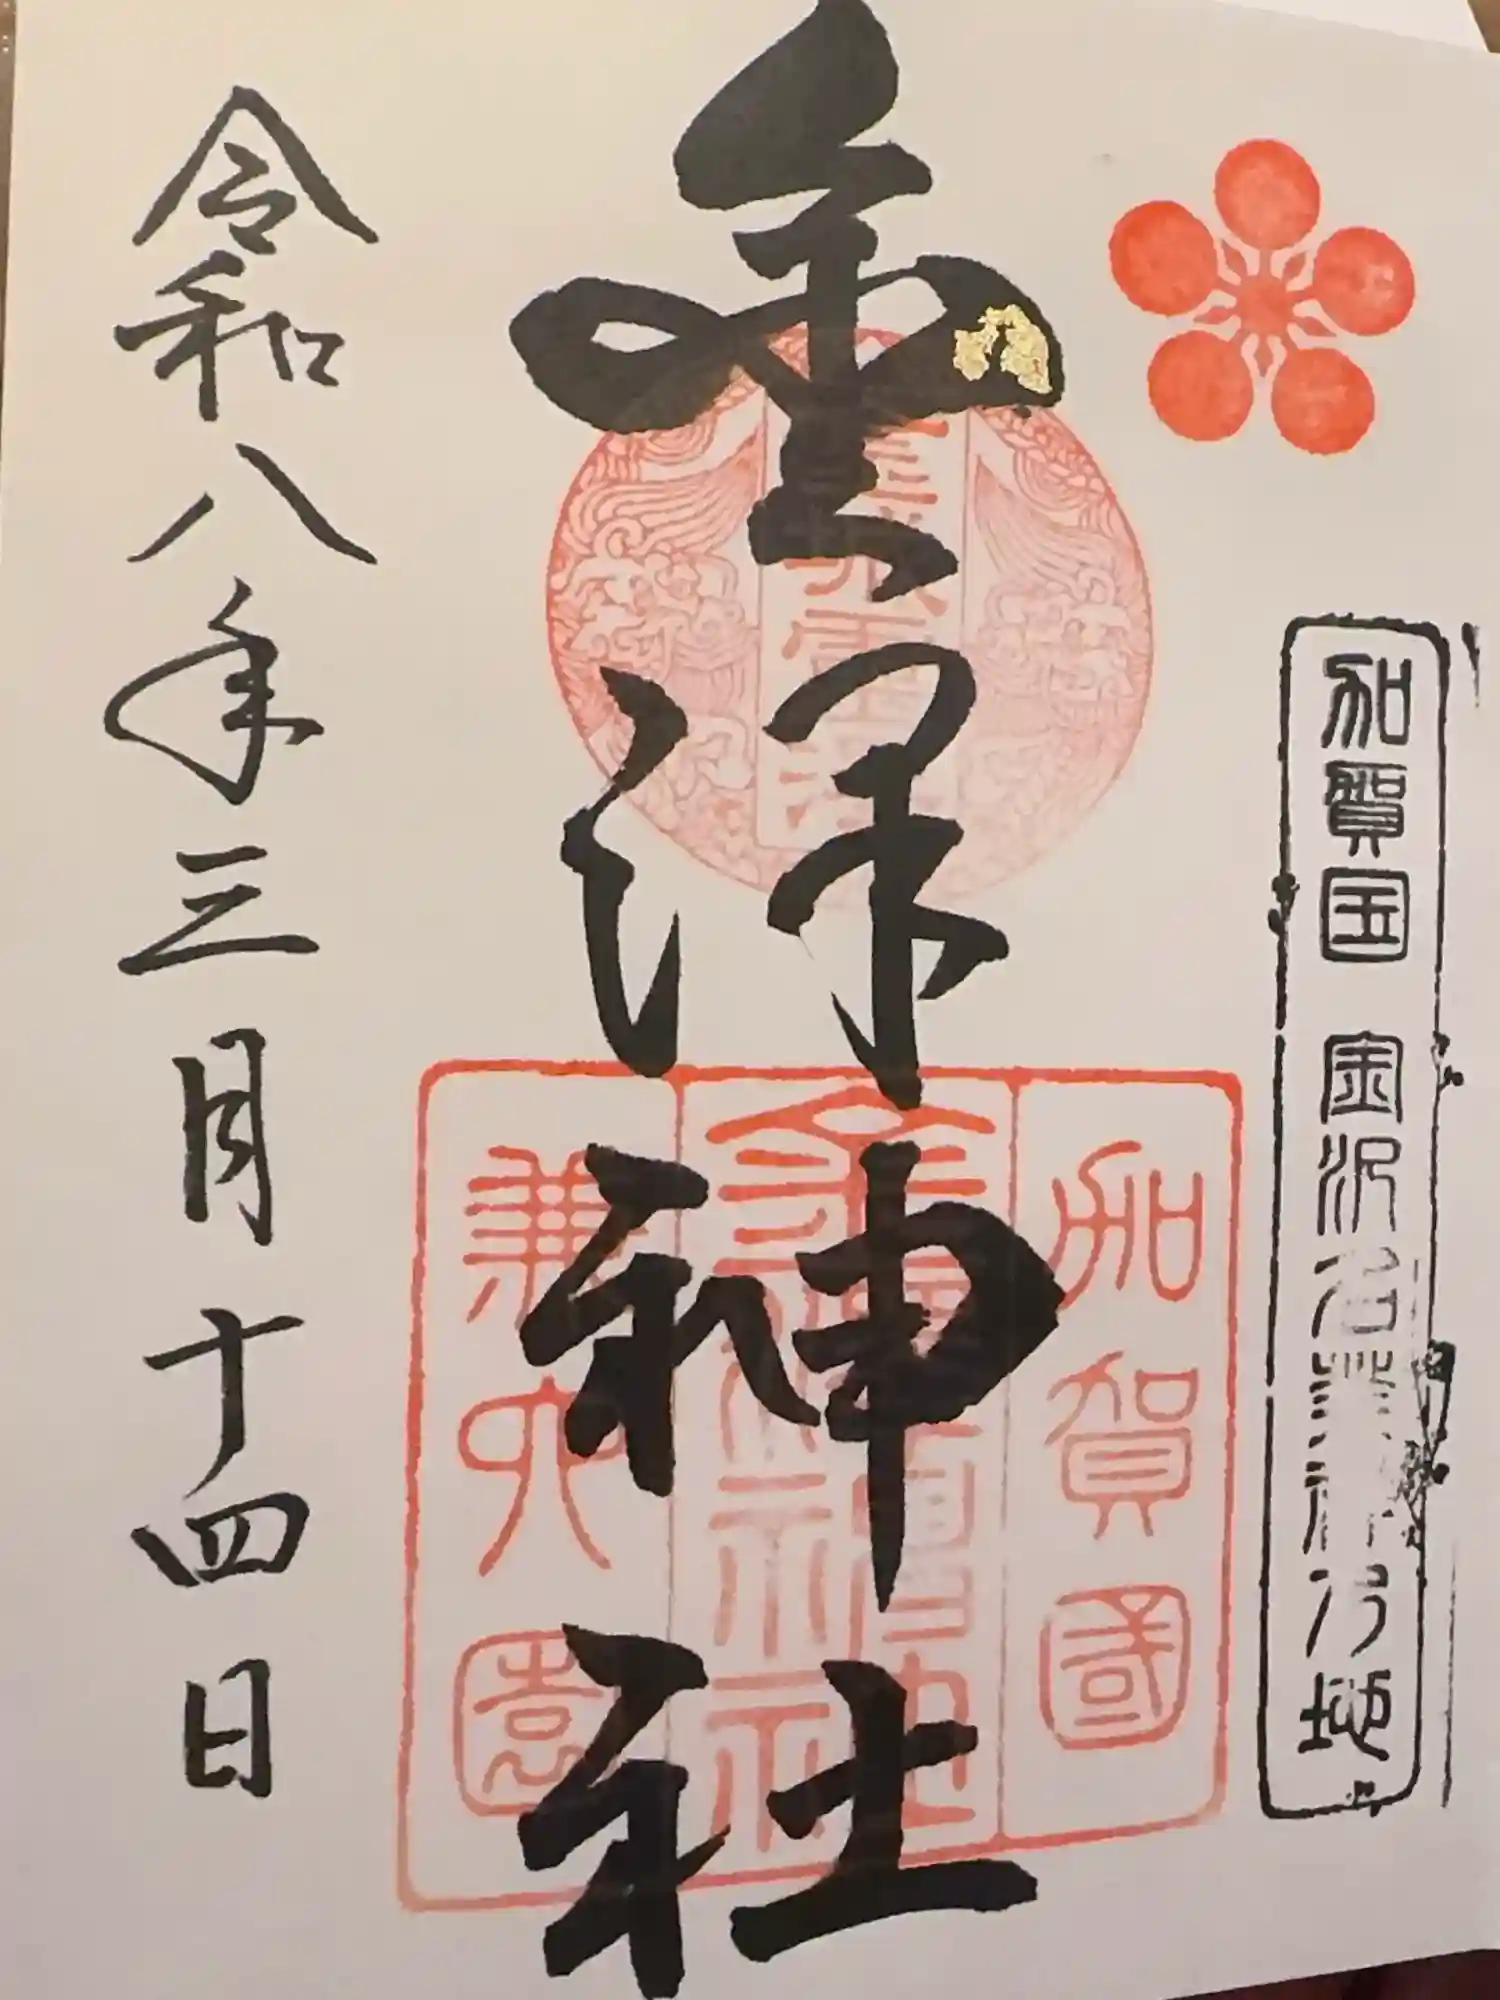 加賀国 金沢 乃地
金澤神社
金城霊澤
加賀國
金澤神社
兼六園
令和八年三月十四日